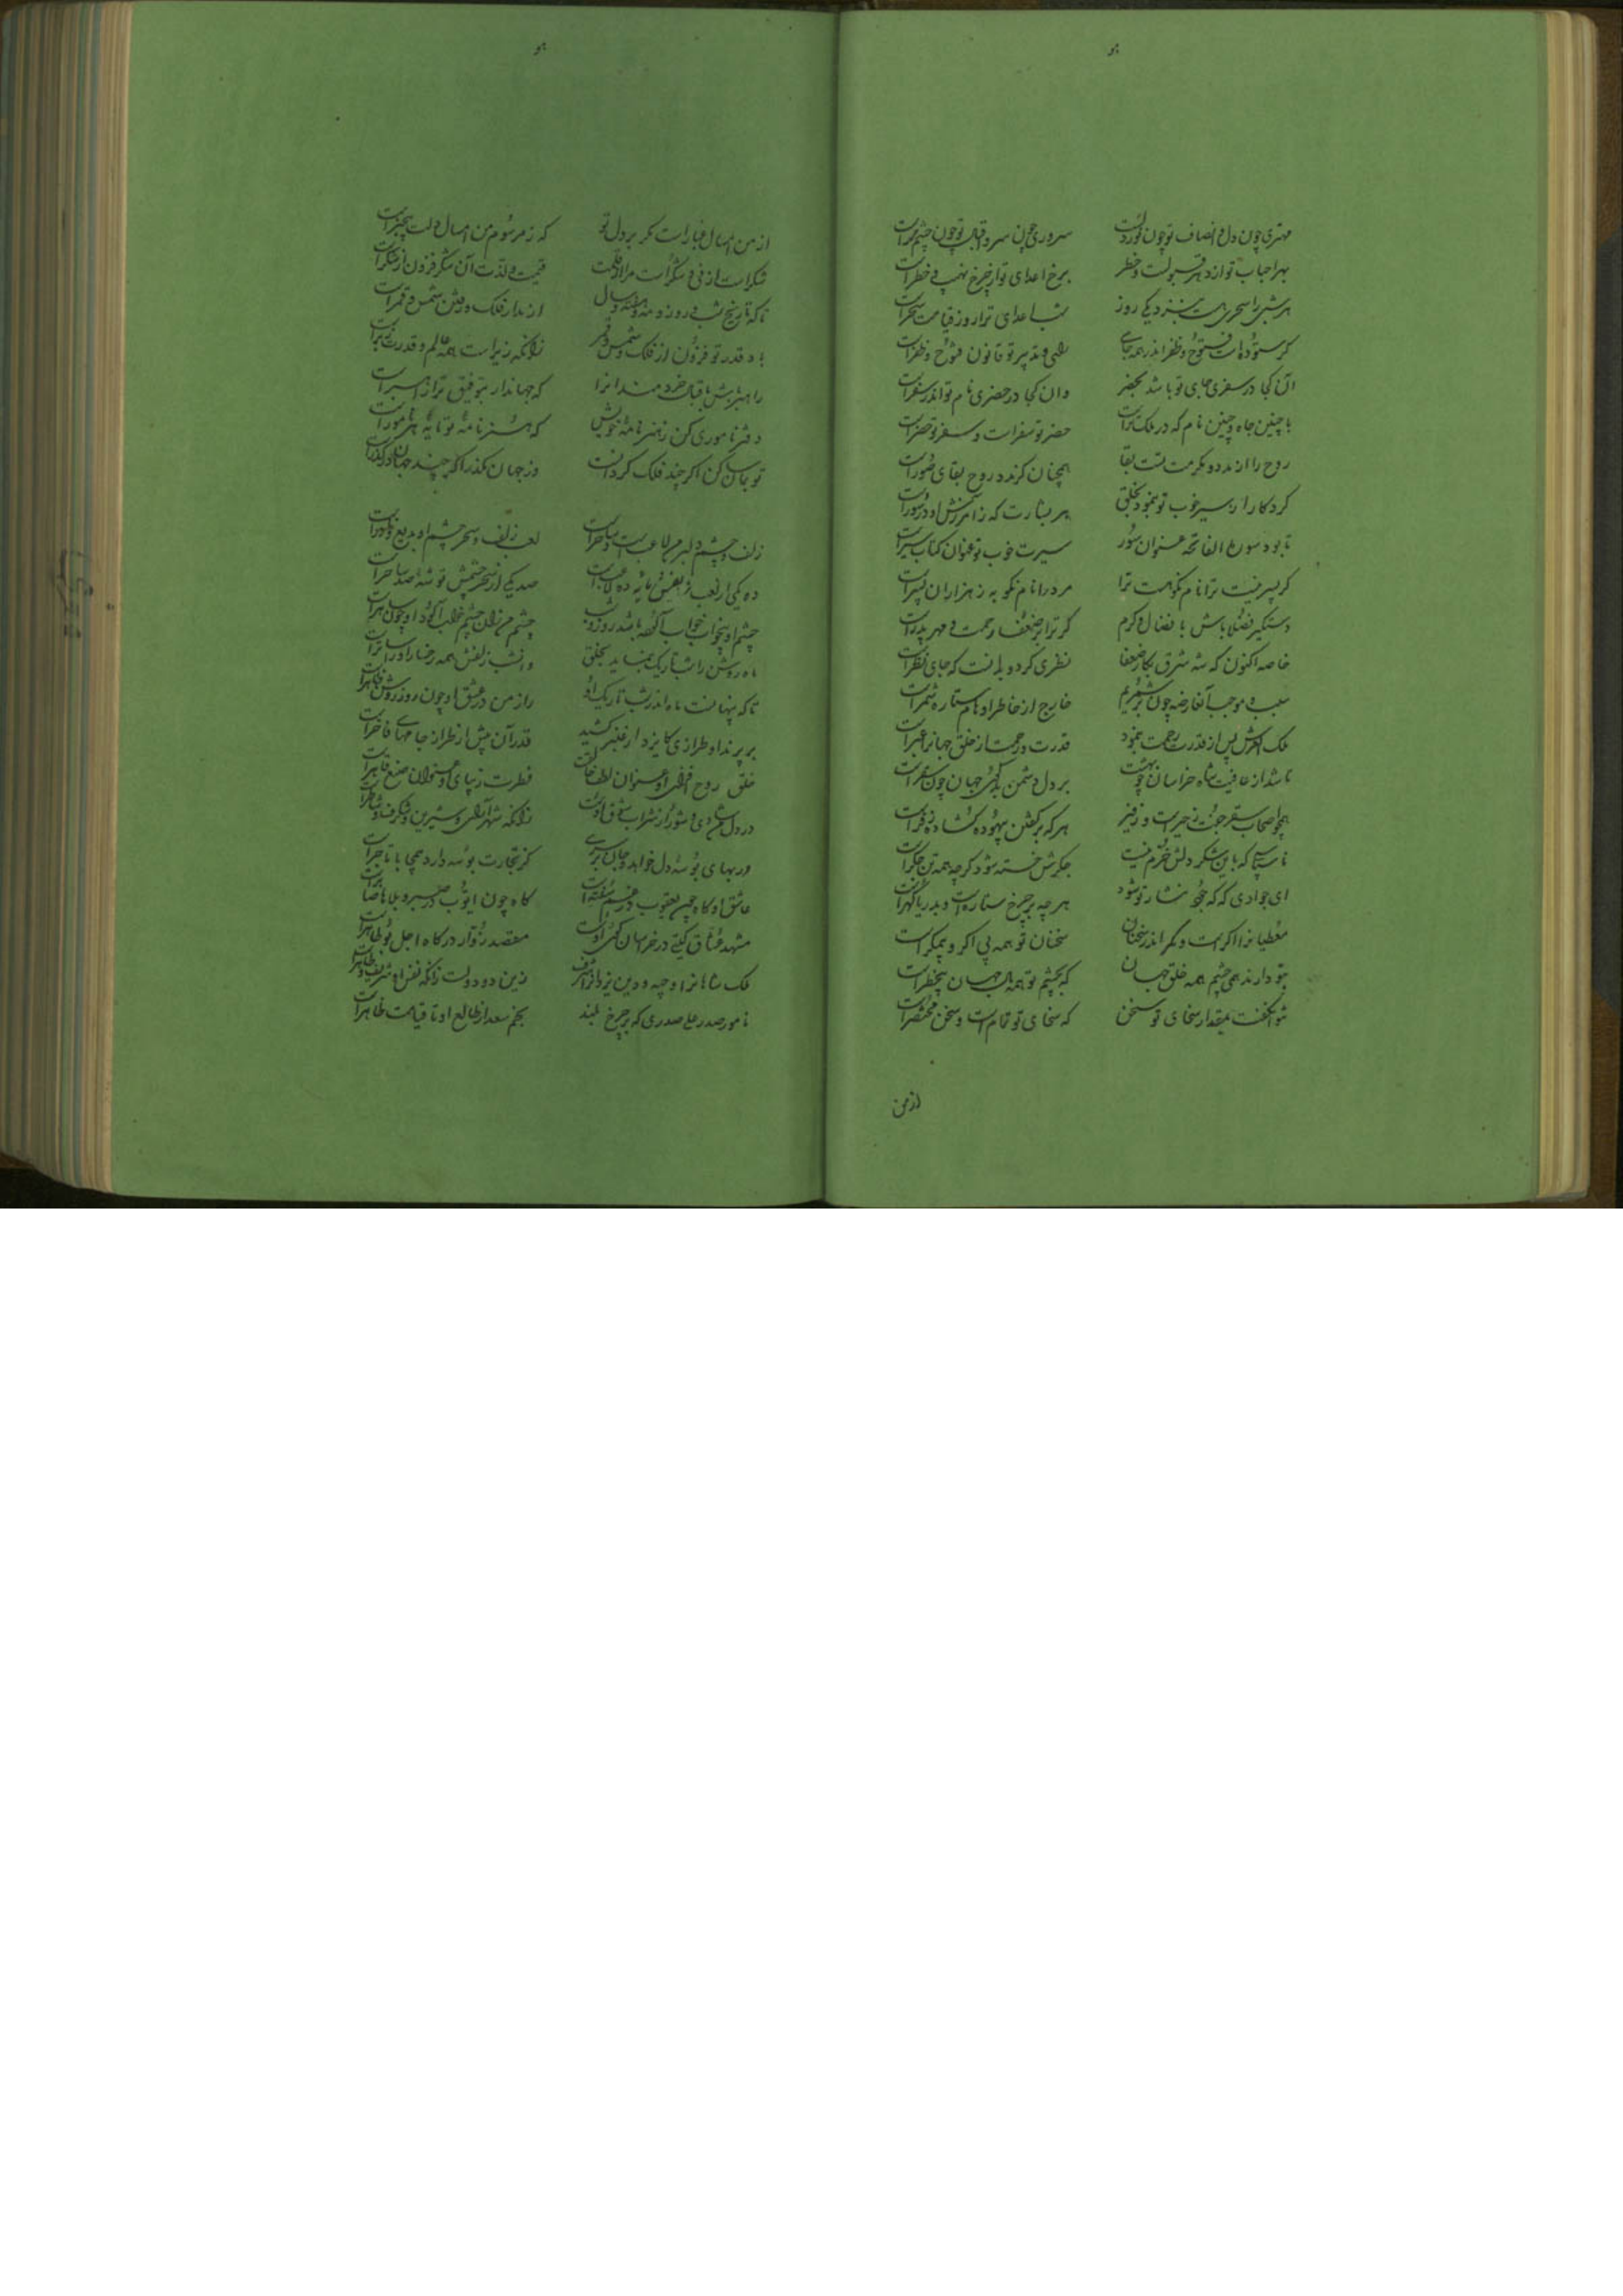 هو
مهتری چون دل و انصاف تو چون نور دلست سروری چون سر و اقبال تو چون چشم سرست
بهر احباب تو از دهر قبولست و خطر برخ اعدای تو از چرخ نهیب و خطرست
هر شبی را سحری هست بنزدیکی روز شب اعدای ترا روز قیامت سحرست
گر ستوده است فتوح و ظفر اندر همه جای رای و تدبیر تو قانون فتوح و ظفرست
آن کجا در سفری جای تو باشد بحضر وان کجا در حضری نام تو اندر سفرست
با چنین جاه و چنین نام که در ملک تراست حضر تو سفرست و سفر تو حضرست
روح را از مدد و مکرمت تست بقا همچنان کز مدد روح بقای صورست
کردگار از سیر خوب تو بنمود بخلق هر بشارت که ز آمرزش او در سورست
تا بود سورة الفاتحه عنوان سور سیرت خوب تو عنوان کتاب سیرست
گر پسر نیست ترا نام نکو هست ترا مرد را نام نکو به ز هزاران پسرست
دستگیر فضلا باش بافضال و کرم گر ترا بر ضعفا رحمت و مهر پدرست
خاصه اکنون که شه شرق بکار ضعفا نظری کرد و بدانست که جای نظرست
سبب و موجب آن عارضه چون بشمریم خارج از خاطر و اوهام ستاره شمرست
ملک العرش پس از قدرت رحمت بنمود قدرت و رحمتش از خلق جهانرا عبرست
تا شد از عافیت شاه خراسان چو بهشت بر دل دشمن بدگوی جهان چون سقرست
همچو اصحاب سقر جفت زحیرست و زفیر هر که بر گفتن بیهوده گشاده زفرست
ناسپاسی که باین شکر دلش خرم نیست جگرش خسته شود گرچه همه تن جگرست
ای جوادی که گه جود نثار تو شود هر چه بر چرخ ستاره است و بدریا گهرست
معطیانرا اگرست و مگر اندر سخنان سخنان تو همه بی اگر و بی مگرست
بتو دارند همی چشم همه خلق جهان که بچشم تو همه مال جهان بی خطرست
نتوان گفت بمقدار سخای تو سخن که سخای تو تمامست و سخن مختصرست
از من
هو
از من امسال غبارست مگر بر دل تو که ز مرسوم من امسال دلت بیخبرست
شکرست از نی و شکرست مرا از قلمت قیمت و لذت آن شکر فزون از شکرست
تا که تاریخ شب و روز و مه و هفته و سال از مدار فلک و رفتن شمس و قمرست
باد قدر تو فزون از فلک و شمس و قمر زانکه زیرست همه عالم و قدرت زبرست
راهبر باش باقبال خردمندانرا که جهاندار بتوفیق ترا راهبرست
دفتر ناموری کن ز هنرنامه خویش که هنرنامه تو تایه هر نامورست
تو بمان گر اگر چند فلک گردانست وز جهان مگذر اگر چند جهان در گذرست
زلف و چشم دلبر من لاعبست و ساحرست لعب زلف و سحر چشم او بدیع و نادرست
ده یکی از لعب زلفش مایه ده لاعبست صد یکی از سحر چشمش توشه صد ساحرست
چشم او بیخواب خواب آلوده باشد روز و شب چشم من زان چشم خواب آلود او چون ساهرست
ماه روشن را شب تاریک بنماید بخلق وان شب زلفش همه رخسار او را ساترست
تا که پنهانست ماه اندر شب تاریک او راز من در عشق او چون روز روشن ظاهرست
بر پرند او طرازی کایزد از عنبر کشید قدر آن بیش از طراز جامهای فاخرست
خلق روح افزای او عنوان لطف خالقست فطرت زیبای او عنوان صنع فاطرست
در دل من شادی و شور از شراب عشق اوست زانکه شهرآرای و شیرین و شگرف و شاطرست
در بهای بوسه دل خواهد و جان بر سری گر تجارت بوسه دارد همچو با تاجرست
عاشق او گاه چون یعقوب در غم مبتلاست گاه چون ایوب در صبر و بلا صابرست
مشهد عشاق گیتی در خراسان کوی اوست مقصد زوار درگاه اجل بوطاهرست
ملک شاهانرا وجیه و دین یزدانرا شرف زین دو دولت زانکه نفس او شریف و طاهرست
نامور صدر علی صدری که بر چرخ بلند نجم سعد از طالع او تا قیامت ظاهرست